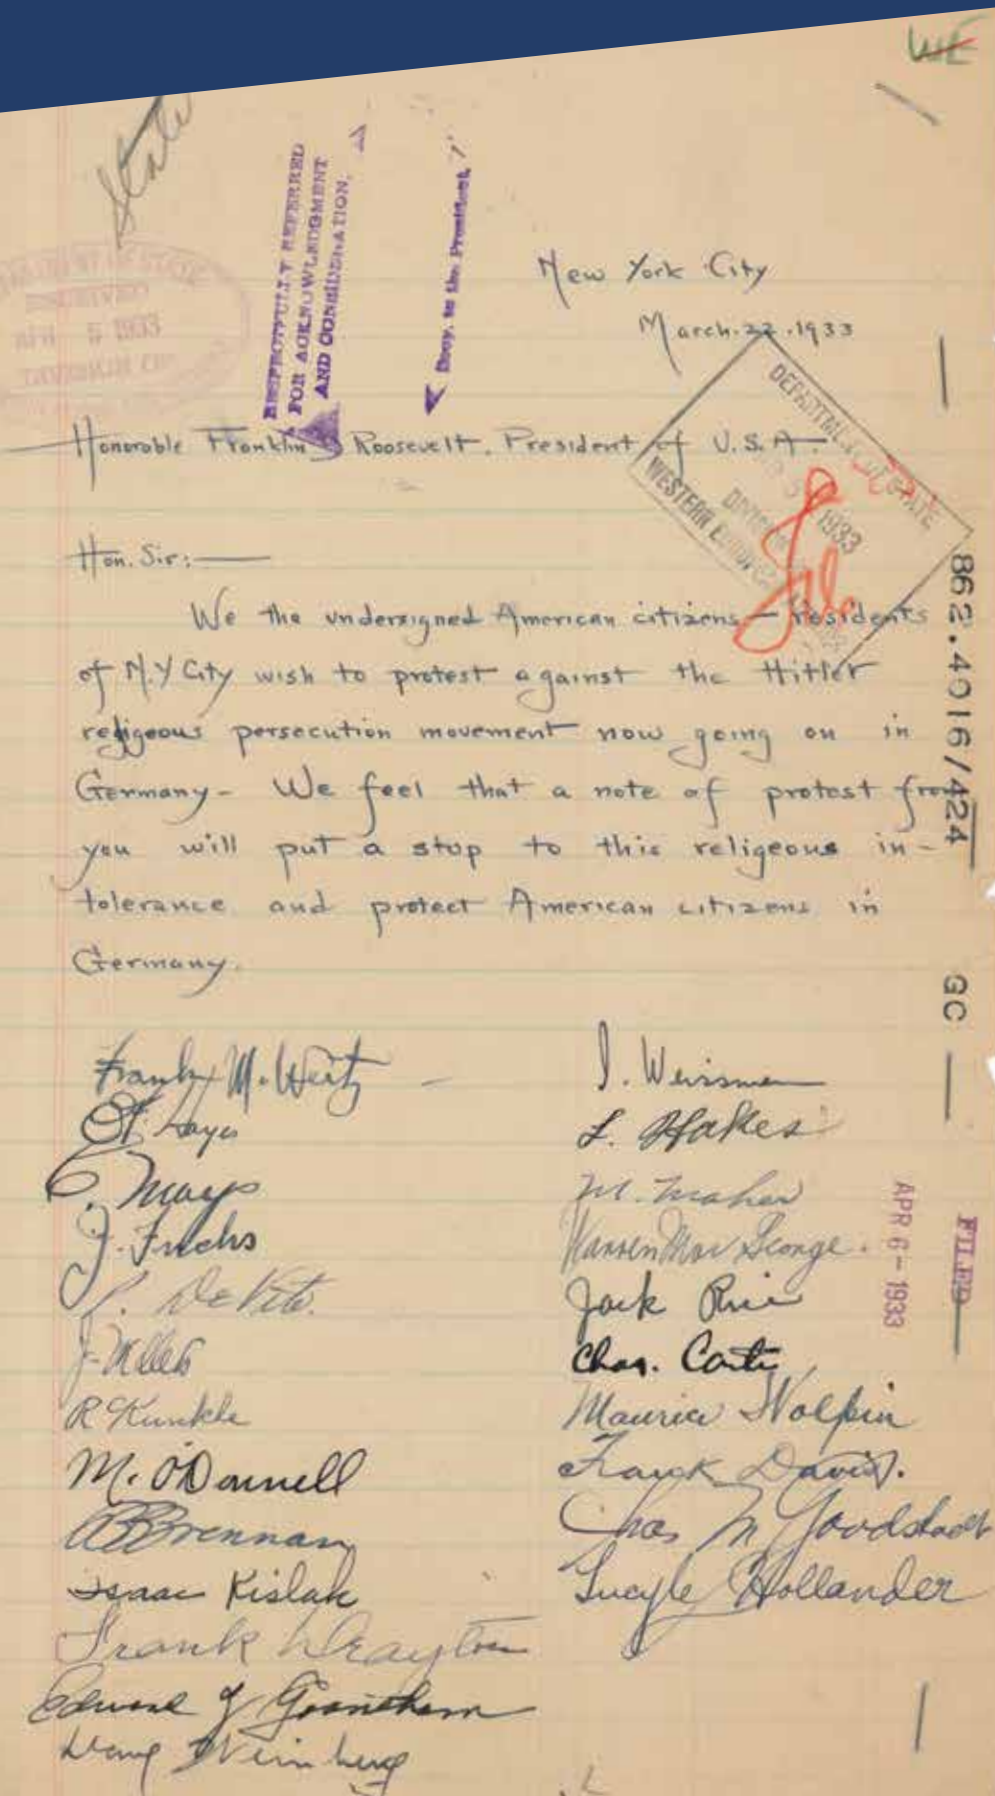 WE
State
RESPECTFULLY REFERRED
FOR ACKNOWLEDGMENT
AND CONSIDERATION,
Secy. to the President,
DEPARTMENT OF STATE
RECEIVED
1933
New York City
March. 22. 1933
DEPARTMENT OF STATE
1933
DIVISION
WESTERN EUROPEAN
Honorable Franklin D Roosevelt. President of U.S.A.
Hon. Sir:—
We the undersigned American citizens — residents
of N.Y City wish to protest against the Hitler
religeous persecution movement now going on in
Germany - We feel that a note of protest from
you will put a stop to this religeous in-
tolerance and protect American citizens in
Germany.
862.4016/424
GC
FILED
APR 6 - 1933
Frank M. Weitz
Hayes
C. Mays
J. Fuchs
P. DeVito.
J.
R Kunkle
M. O'Donnell
Brennan
Isaac Kislak
Frank Drayton
Edward J Grantham
Weinberg
I. Weissman
L. Hakes
M. Maher
Warren Mac George.
Jack Rice
Chas. Carty
Maurice Wolpin
Frank Davis.
Chas M Goodstadt
Lucyle Hollander